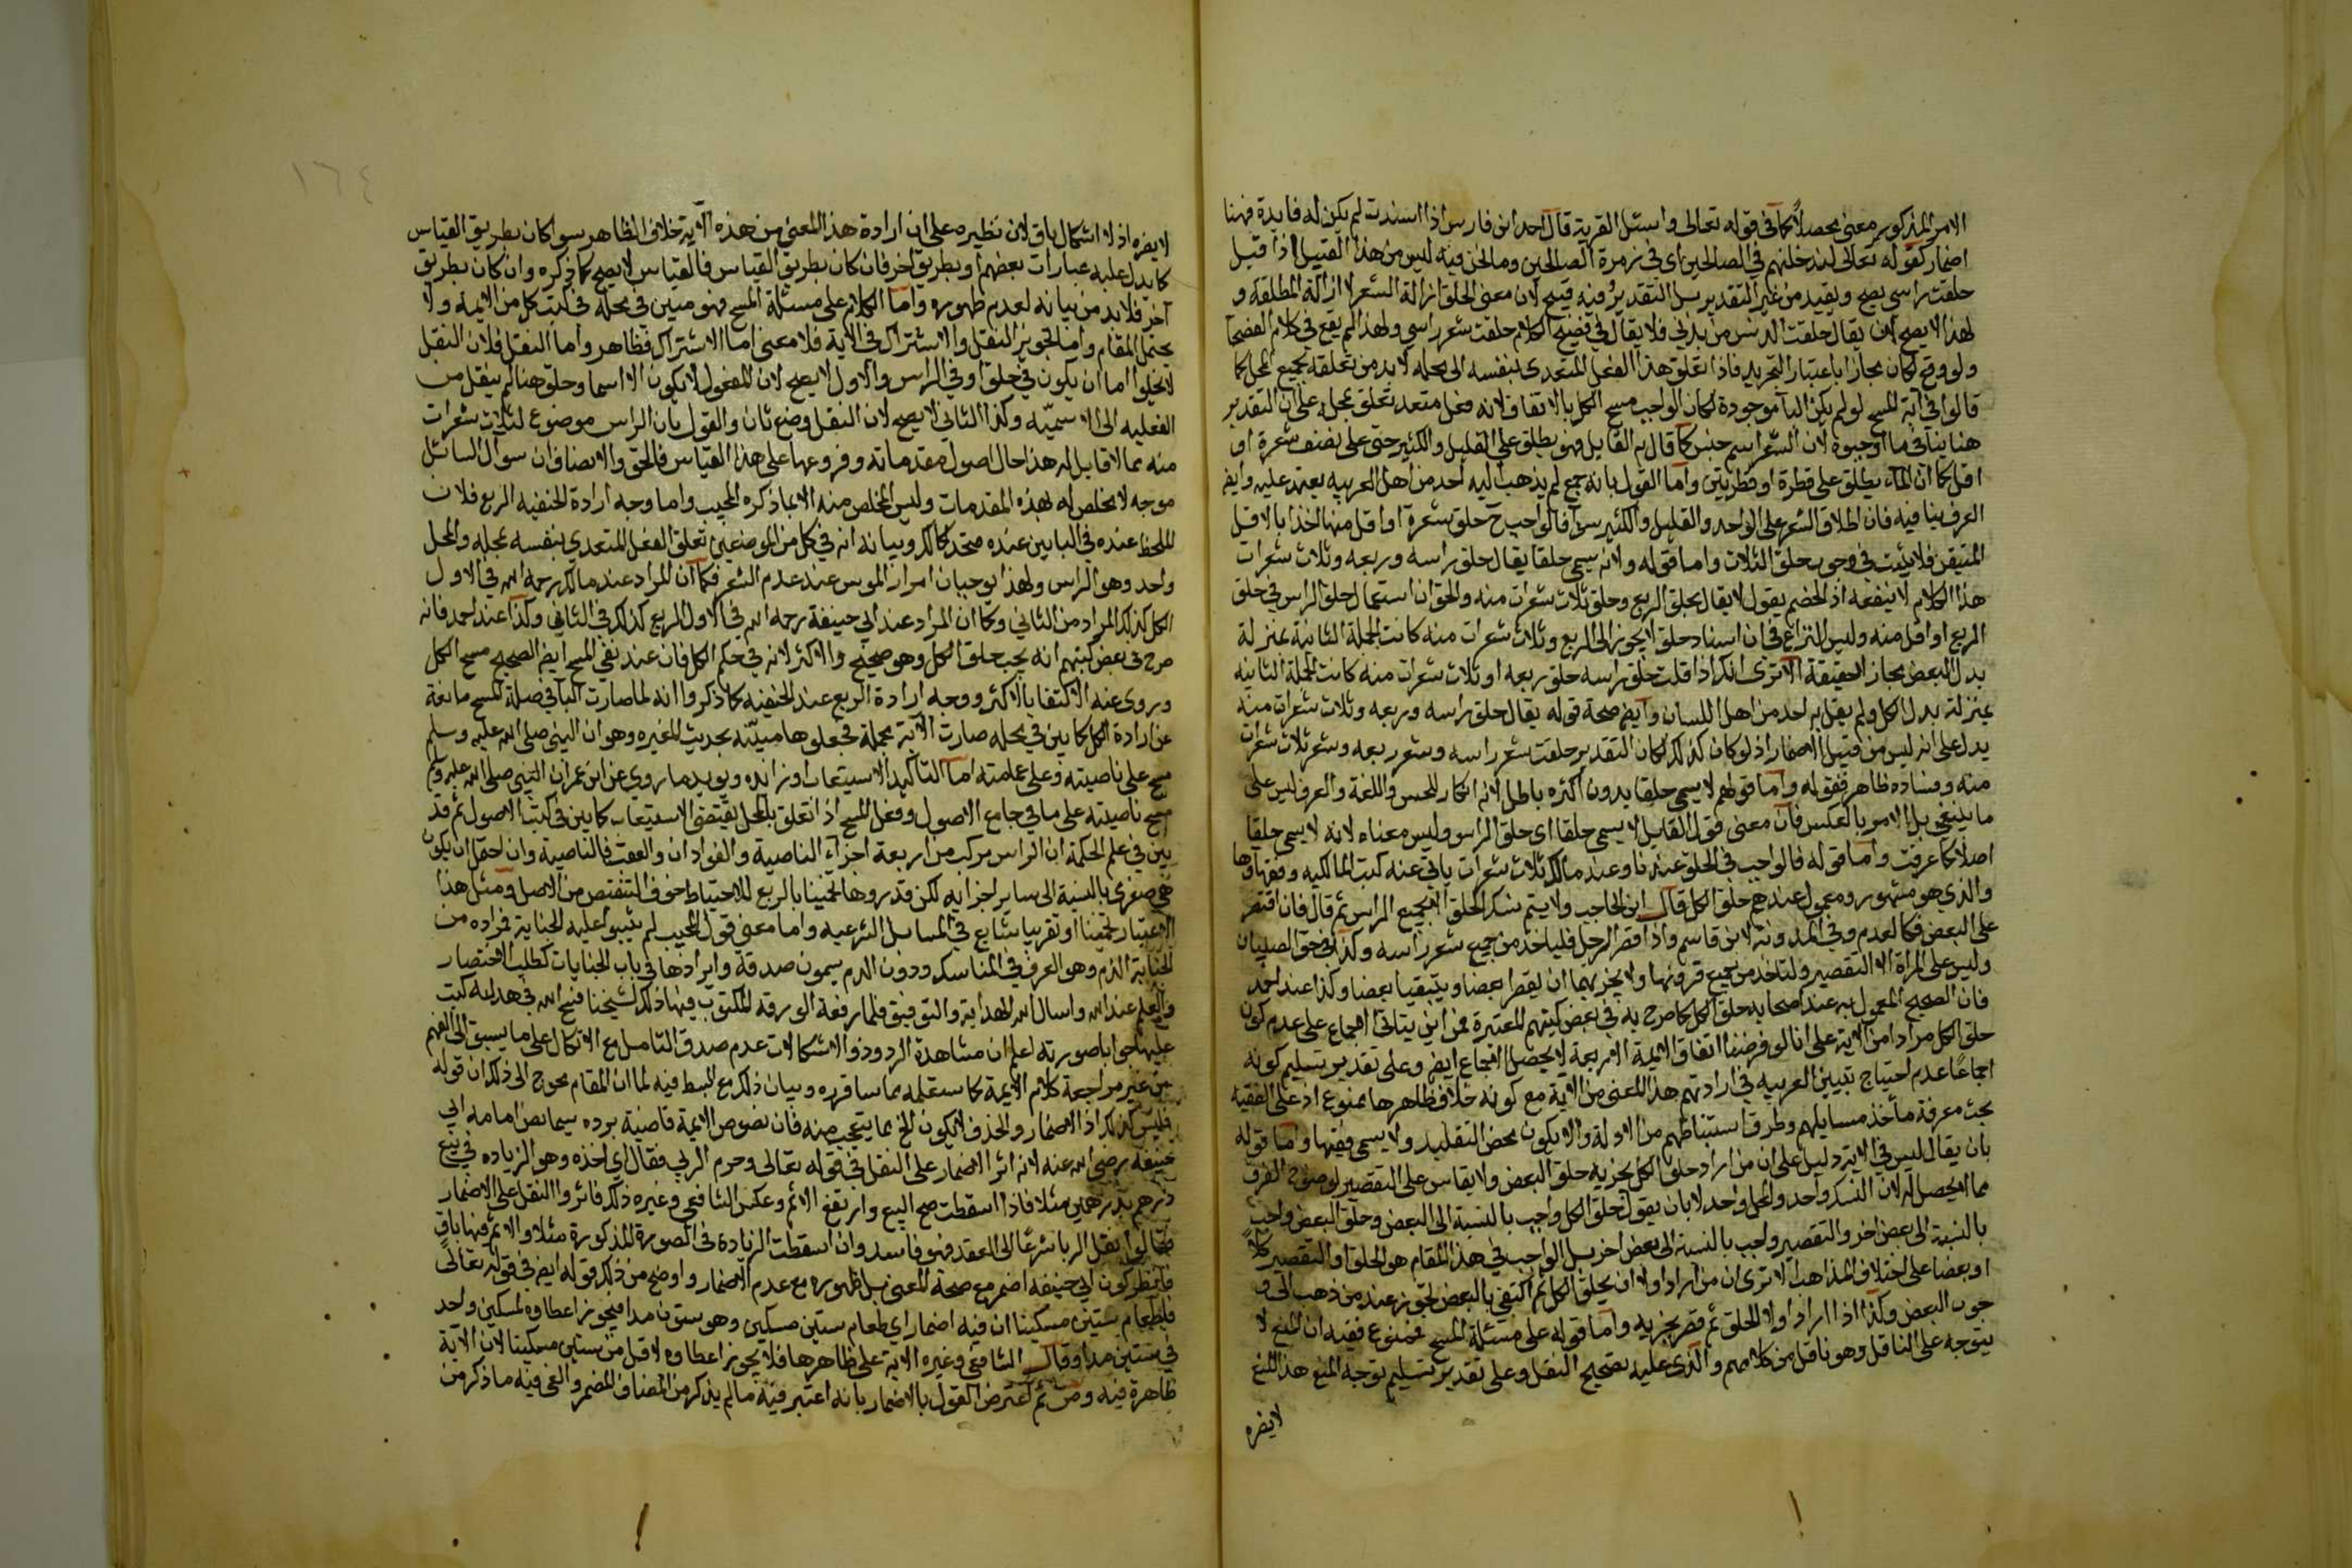 الامر المذكور معنى محصلا كما في قوله تعالى واسئل القرية قال احد ابن فارس اذا اسندت لم يكن له فايدة فهنا
اضمار كقوله تعالى لندخلنهم في الصالحين اي في زمرة الصالحين وما نحن فيه ليس من هذا القبيل اذا قيل
حلقت راسي يصح ويفيد من غير التقدير بل التقدير فيه قبيح لان معنى الحلق ازالة الشعر لا ازالة المطلقة و
لهذا لا يصح ان يقال حلقت الدنس من بدني فلا يقال في فصيح الكلام حلقت شعر راسي ولهذا لم يقع في كلام الفصحا
ولو وقع لكان مجازا باعتبار التجريد فاذا تعلق هذا الفعل المتعدي بنفسه الى محله لا بد من تعلقه بجميع المحل كما
قالوا في آية المسح لو لم يكن البآ موجودة لكان الواجب مسح الكل بالاتفاق لانه فعل متعد تعلق بمحله على ان التقدير
هنا ينافي ما اوجبوه لان الشعر اسم جنس كما قال به القايل فهو يطلق على القليل والكثير حتى على نصف شعرة او
اقل كما ان المآء يطلق على قطرة او قطرتين واما القول بانه جمع لم يذهب اليه احد من اهل العربيه يعتد عليه وايض
العرف ينافيه فان اطلاق الشعر على الواحد والقليل والكثير سوآ فالواجب ح حلق شعرة او اقل منها اخذا بالاقل
المتيقن فلا يثبت في وجوب حلق الثلاث واما قوله ولانه يسمى حلقا يقال حلق راسه وربعه وثلاث شعرات
هذا الكلام لا ينفعه اذ الخصم يقول لا يقال بحلق الربع وحلق ثلاث شعرات منه والحق ان استعمال حلق الراس في حلق
الربع او اقل منه وليس النزاع في ان اسناد حلق لا يجوز الى الربع وثلاث شعرات منه كانت الجملة الثانية بمنزلة
بدل البعض مجاز الحقيقة الا ترى انك اذا قلت حلق راسه حلق ربعه او ثلاث شعرات منه كانت الجملة الثانيه
بمنزلة بدل الكل ولم يقل به احد من اهل اللسان وايض صحة قوله يقال حلق راسه وربعه وثلاث شعرات منه
يدل على انه ليس من قبيل الاضمار اذ لو كان كذلك لكان التقدير حلقت شعر راسه وشعر ربعه وشعر ثلاث شعرات
منه وفساده ظاهر فقوله واما قولهم لا يسمى حلقا بدون اكثره باطل لانه انكار للحس واللغة والعرف ليس على
ما ينبغي بل الامر بالعكس فان معنى قول القايل لا يسمى حلقا اي حلق الراس وليس معناه لانه لا يسمى حلقا
اصلا كما عرفت واما قوله فالواجب في الحلق عندنا وعند مالك ثلاث شعرات يابى عنه كتب المالكيه وفقهاؤها
والذي هو مشهور ومعمول عندهم حلق الكل قال ابن الحاجب ولا يتم نسك الحلق الا بجميع الراس ثم قال فان اقتصر
على البعض فكالعدم وفي المدونة لابن قاسم واذا قصر الرجل فلياخذ من جميع شعر راسه وكذا في حق الصبيان
وليس على المراة الا التقصير ولتاخذ من جميع قرونها ولا يجزيهما ان يقصرا بعضا ويبقيا بعضا وكذا عند احمد
فان الصحيح المعمول به عند اصحابه حلق الكل كما صرح به في بعض كتبهم المعتبرة فمن اين يتاتى الاجماع على عدم كون
حلق الكل مرادا من الاية على انا لو فرضنا اتفاق الايمة الاربعة لا يحصل الاجماع ايض وعلى تقدير تسليم كونه
اجماعا عدم احتياج تبيين العربيه في ارادتهم هذا المعنى من الاية مع كونه خلاف ظاهرها ممنوع اذ على الفقيه
بحث معرفة مأخذ مسايلهم وطرق استنباطهم من الادلة والا يكون محض التقليد ولا يسمى فقيها واما قوله
بان يقال ليس في الاية دليل على ان من اراد حلق الكل يجزيه حلق البعض ولا يقاس على التقصير لوضوح الفرق
مما لا يحصل له لان النسك واحد والمحل واحد لا بان يقول حلق الكل واجب بالنسبة الى البعض وحلق البعض واجب
بالنسبة الى بعض اخر والتقصير واجب بالنسبة الى بعض اخر بل الواجب في هذا المقام هو الحلق او التقصير كلا
او بعضا على اختلاف المذاهب الا ترى ان من اراد اولا ان يحلق الكل ثم اكتفى بالبعض لتجوز عند من ذهب الى و
جوب البعض وكذا اذا اراد اولا الحلق ثم قصر يجزيه واما قوله على مسئلة المسح فممنوع ففيه ان المنع لا
يتوجه على الناقل وهو ناقل من كلامهم والذي عليه تصحيح النقل وعلى تقدير تسليم توجه المنع هذا المنع
لا يضره
١٦٤
لا يضره اذ لا اشكال باق لان نظيره على ان ارادة هذا المعنى من هذه الآية خلاف الظاهر سوا كان بطريق القياس
كما يدل عليه عبارات بعضهم او بطريق اخر فان كان بطريق القياس فالقياس لا يصح كما ذكره وان كان بطريق
آخر فلا بد من بيانه لعدم ظهوره واما الكلام على مسئلة المسح فهو مبين في محله في كتب كل من الايمة ولا
يحتمل المقام واما تجويز النقل والاشتراك في الاية فلا معنى اما الاشتراك فظاهر واما النقل فلان النقل
لا يخلوا اما ان يكون في حلق او في الراس والاول لا يصح لان المفعول لا يكون الا اسما وحلق هنا لم ينقل من
الفعليه الى الاسميّه وكذا الثاني لا يصح لان النقل وضع ثان والقول بان الراس موضوع لثلاث شعرات
منه مما لا قايل له هذا حال اصول مقدماته وفروعها على هذا القياس فالحق والانصاف ان سوال السائل
موجه لا مخلص له بهذه المقدمات وليس المخلص منه الا بما ذكره المجيب واما وجه ارادة الحنفيه الربع فلان
الملحظ عنده في البابين عنده متحد كمالك وبيانه انه في كل من الموضعين تعلق الفعل المتعدي بنفسه بمحله والمحل
واحد وهو الراس ولهذا يوجبان امرار الموس عند عدم الشعر فكما ان المراد عند مالك رحمه الله في الاول
الكل كذلك المراد من الثاني وكما ان المراد عند ابي حنيفة رحمه الله في الاول الربع كذلك في الثاني وكذا عند احمد فانه
صرح في بعض كتبهم انه يجب حلق الكل وهو صحيح والاكثر لانه في حكم الكل فان عنده في المسح ايض الصحيح مسح الكل
وروي عنه الاكتفا بالاكثر ووجه ارادة الربع عند الحنفيه كما ذكروا انه لما صارت البا في صلة المسح مانعة
عن ارادة الكل كما بين في محله صارت الآية مجملة فجعلوها مبيّنه بحديث المغيره وهو ان النبي صلى الله عليه وسلم
مسح على ناصيته وعلى عمامته اما التأكيد الاستيعاب او زائده ويويد ما روي عن ابن عمر ان النبي صلى الله عليه وسلم
مسح ناصيته على ما في جامع الاصول وفعل المسح اذا تعلق بالمحل يقتضي الاستيعاب كما بين في كتب الاصول ثم قد
بين في علم الحكمة ان الراس مركب من اربعة اجزآء الناصية والفوادان والقفا فالناصية وان احتمل ان يكون
هي صغرى بالنسبة الى ساير اجزايه لكن قدروها تخمينا بالربع للاحتياط خوف التنقص من الاصل ومثل هذا
الاعتبار تخمينا او تقريبا شايع في المسايل الشرعيه واما معنى قول المجيب لم يثبتوا عليه الجناية فمراده من
الجناية الدم وهو العرف في المناسك ودون الدم يسمون صدقة وايرادها في باب الجنايات كطلب الاختصار
والعلم عند الله واسال الله الهداية والتوفيق فلما رفعة الورقة المكتوب فيها ذلك لشيخنا فسح الله في مدته كتب
عليها جوابا صورته اعلم ان مشاهدة الردود والاشكالات عدم صدق التامل مع الاتكال على ما يسبق الى الفهم
من غير مراجعة كلام الايمة كما ستعلمه مما ساقرره وبيان ذلك مع البسط فيه لما ان المقام محوج الى ذلك ان قوله
فليس كذلك اذ الاضمار والحذف لا يكون الخ مما يتعجب منه فان نصوص الايمة قاضية برده سيما نص امامه ابي
حنيفة رضي الله عنه لانه اثر الاضمار على النقل في قوله تعالى وحرم الربى فقال اي اخذه وهو الزياده في بيع
درهم بدرهمين مثلا فاذا اسقطت صح البيع وارتفع الاثم وعكس الشافعي وغيره ذلك فاثروا النقل على الاضمار
فقالوا نقل الربا شرعا الى العقد فهو فاسد وان اسقطت الزيادة في الصورة المذكورة مثلا والاثم فيها باق
فانظر كون ابي حنيفه اضمر مع صحة المعنى بل ظهوره مع عدم الاضمار واوضح من ذلك قوله ايض في قوله تعالى
فاطعام ستين مسكينا ان فيه اضمار اي طعام ستين مسكين وهو ستون مدا فيجوز اعطاوه لمسكين واحد
في ستين مدا وقال الشافعي وغيره الاية على ظاهرها فلا يجوز اعطاوه لاقل من ستين مسكينا لان الآية
ظاهرة فيه ومن ثم اعترض القول بالاضمار بانه اعتبر فيه ما لم يذكر من المضاف المضمر والغي فيه ما ذكر من